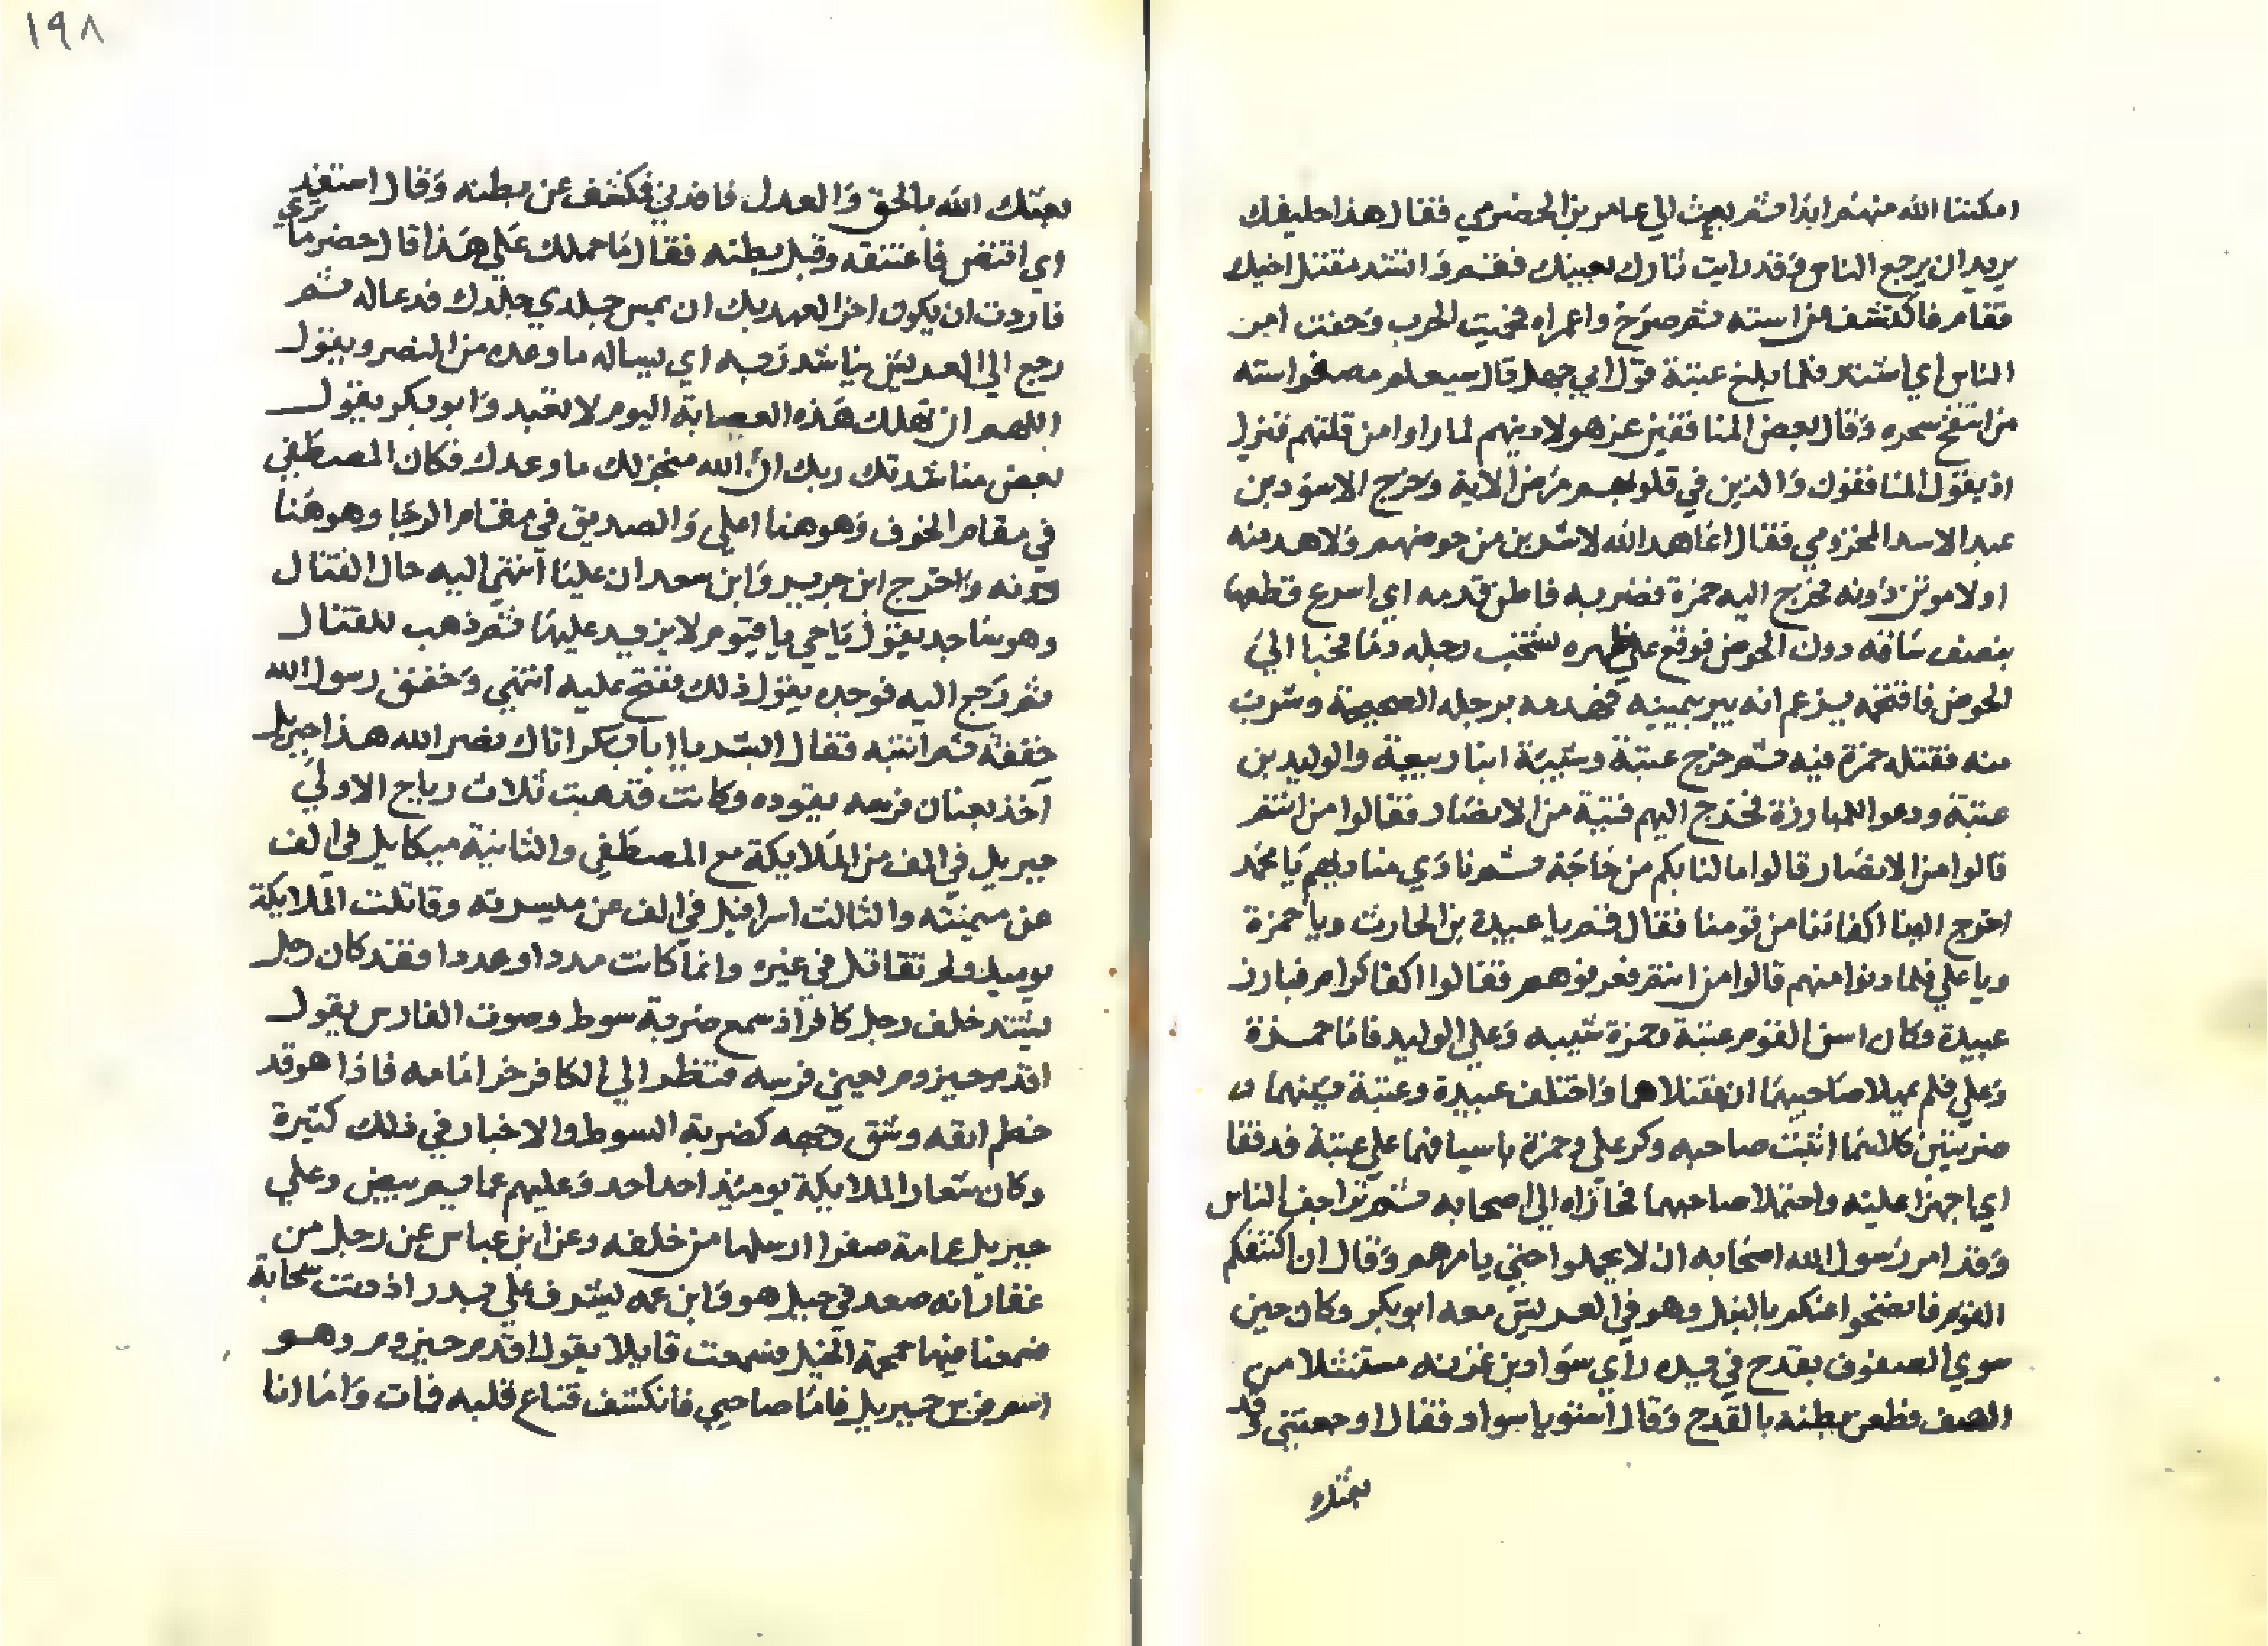 امكننا الله منهم ابدا ثم بعث الي عامر بن الحضرمي فقال هذا حليفك
يريد ان يرجع الناس وقد رايت ثارك بعينك فقم وانشد مقتل اخيك
فقام فاكتشف عن استه ثم صرخ واعمراه فحميت الحرب وحقت امر
الناس اي اشتد فلما بلغ عتبة قول ابي جهل قال سيعلم مصفر استه
من انتفخ سحره وقال بعض المنافقين غر هولا دينهم لما راوا من قلتهم فنزل
اذ يقول المنافقون والذين في قلوبهم مرض الاية وخرج الاسود بن
عبد الاسد المخزومي فقال اعاهد الله لاشربن من حوضهم ولاهدمنه
اولاموتن دونه فخرج اليه حمزة فضربه فاطن قدمه اي اسرع قطعها
بنصف ساقه دون الحوض فوقع علي ظهره تشخب رجله دما فحبا الي
الحوض فاقتحمه يزعم انه يبر يمينه فهدمه برجله الصحيحة وشرب
منه فقتله حمزة فيه ثم خرج عتبة وشيبة ابنا ربيعة والوليد بن
عتبة ودعوا للمبارزة فخرج اليهم فتية من الانصار فقالوا من انتم
قالوا من الانصار قالوا مالنا بكم من حاجة ثم نادي مناديهم يا محمد
اخرج الينا اكفائنا من قومنا فقال قم يا عبيدة بن الحارث ويا حمزة
ويا علي فلما دنوا منهم قالوا من انتم فعرفوهم فقالوا اكفا كرام فبارز
عبيدة وكان اسن القوم عتبة وحمزة شيبه وعلي الوليد فاما حمزة
وعلي فلم يمهلا صاحبيهما ان قتلاهما واختلف عبيدة وعتبة بينهما
ضربتين كلاهما اثبت صاحبه وكر علي وحمزة باسيافهما علي عتبة فدففا
اي اجهزا عليه واحتملا صاحبهما فحازاه الي اصحابه ثم تزاحف الناس
وقد امر رسول الله اصحابه ان لا يحملوا حتي يامرهم وقال ان اكتنفكم
القوم فانضحوا عنكم بالنبل وهو في العريش معه ابوبكر وكان حين
سوي الصفوف بقدح في يده راي سواد بن غزيه مستنثلا من
الصف فطعن بطنه بالقدح وقال استو يا سواد فقال اوجعتني وقد
بعثك
١٩٨
بعثك الله بالحق والعدل فاقدني فكشف عن بطنه وقال استقد
اي اقتض فاعتنقه وقبل بطنه فقال ما حملك علي هذا قال حضر ما تري
فاردت ان يكون اخر العهد بك ان يمس جلدي جلدك فدعا له ثم
رجع الي العريش يناشد ربه اي يساله ما وعده من النصر ويقول
اللهم ان تهلك هذه العصابة اليوم لا تعبد وابو بكر يقول
بعض مناشدتك ربك ان الله منجز لك ما وعدك فكان المصطفي
في مقام الخوف وهو هنا اعلي والصديق في مقام الرجا وهو هنا
دونه واخرج ابن جرير وابن سعد ان عليا انتهي اليه حال القتال
وهو ساجد يقول يا حي يا قيوم لا يزيد عليها ثم ذهب للقتال
ثم رجع اليه فوجده يقول ذلك ففتح عليه انتهي وخفق رسول الله
خفقة ثم انتبه فقال ابشر يا ابا بكر اتاك نصر الله هذا جبريل
آخذ بعنان فرسه يقوده وكانت قد هبت ثلاث رياح الاولي
جبريل في الف من الملايكة مع المصطفي والثانية ميكايل في الف
عن ميمنته والثالث اسرافيل في الف عن ميسرته وقاتلت الملايكة
يوميذ ولم تقاتل في غيره وانما كانت مددا وعددا فقد كان رجل
يشتد خلف رجل كافر اذ سمع ضربة سوط وصوت الفارس يقول
اقدم حيزوم يعني فرسه فنظر الي الكافر خر امامه فاذا هو قد
خطم انفه وشق وجهه كضربة السوط والاخبار في ذلك كثيرة
وكان شعار الملايكة يومئذ احد احد وعليهم عمايم بيض وعلي
جبريل عمامة صفرا ارسلها من خلفه وعن ابن عباس عن رجل من
غفار انه صعد في جبل هو وابن عمه ليشرف علي بدر اذ دنت سحابة
فسمعنا فيها حمحمة الخيل فسمعت قايلا يقول اقدم حيزوم وهو
اسم فرس جبريل فاما صاحبي فانكشف قناع قلبه فمات واما انا